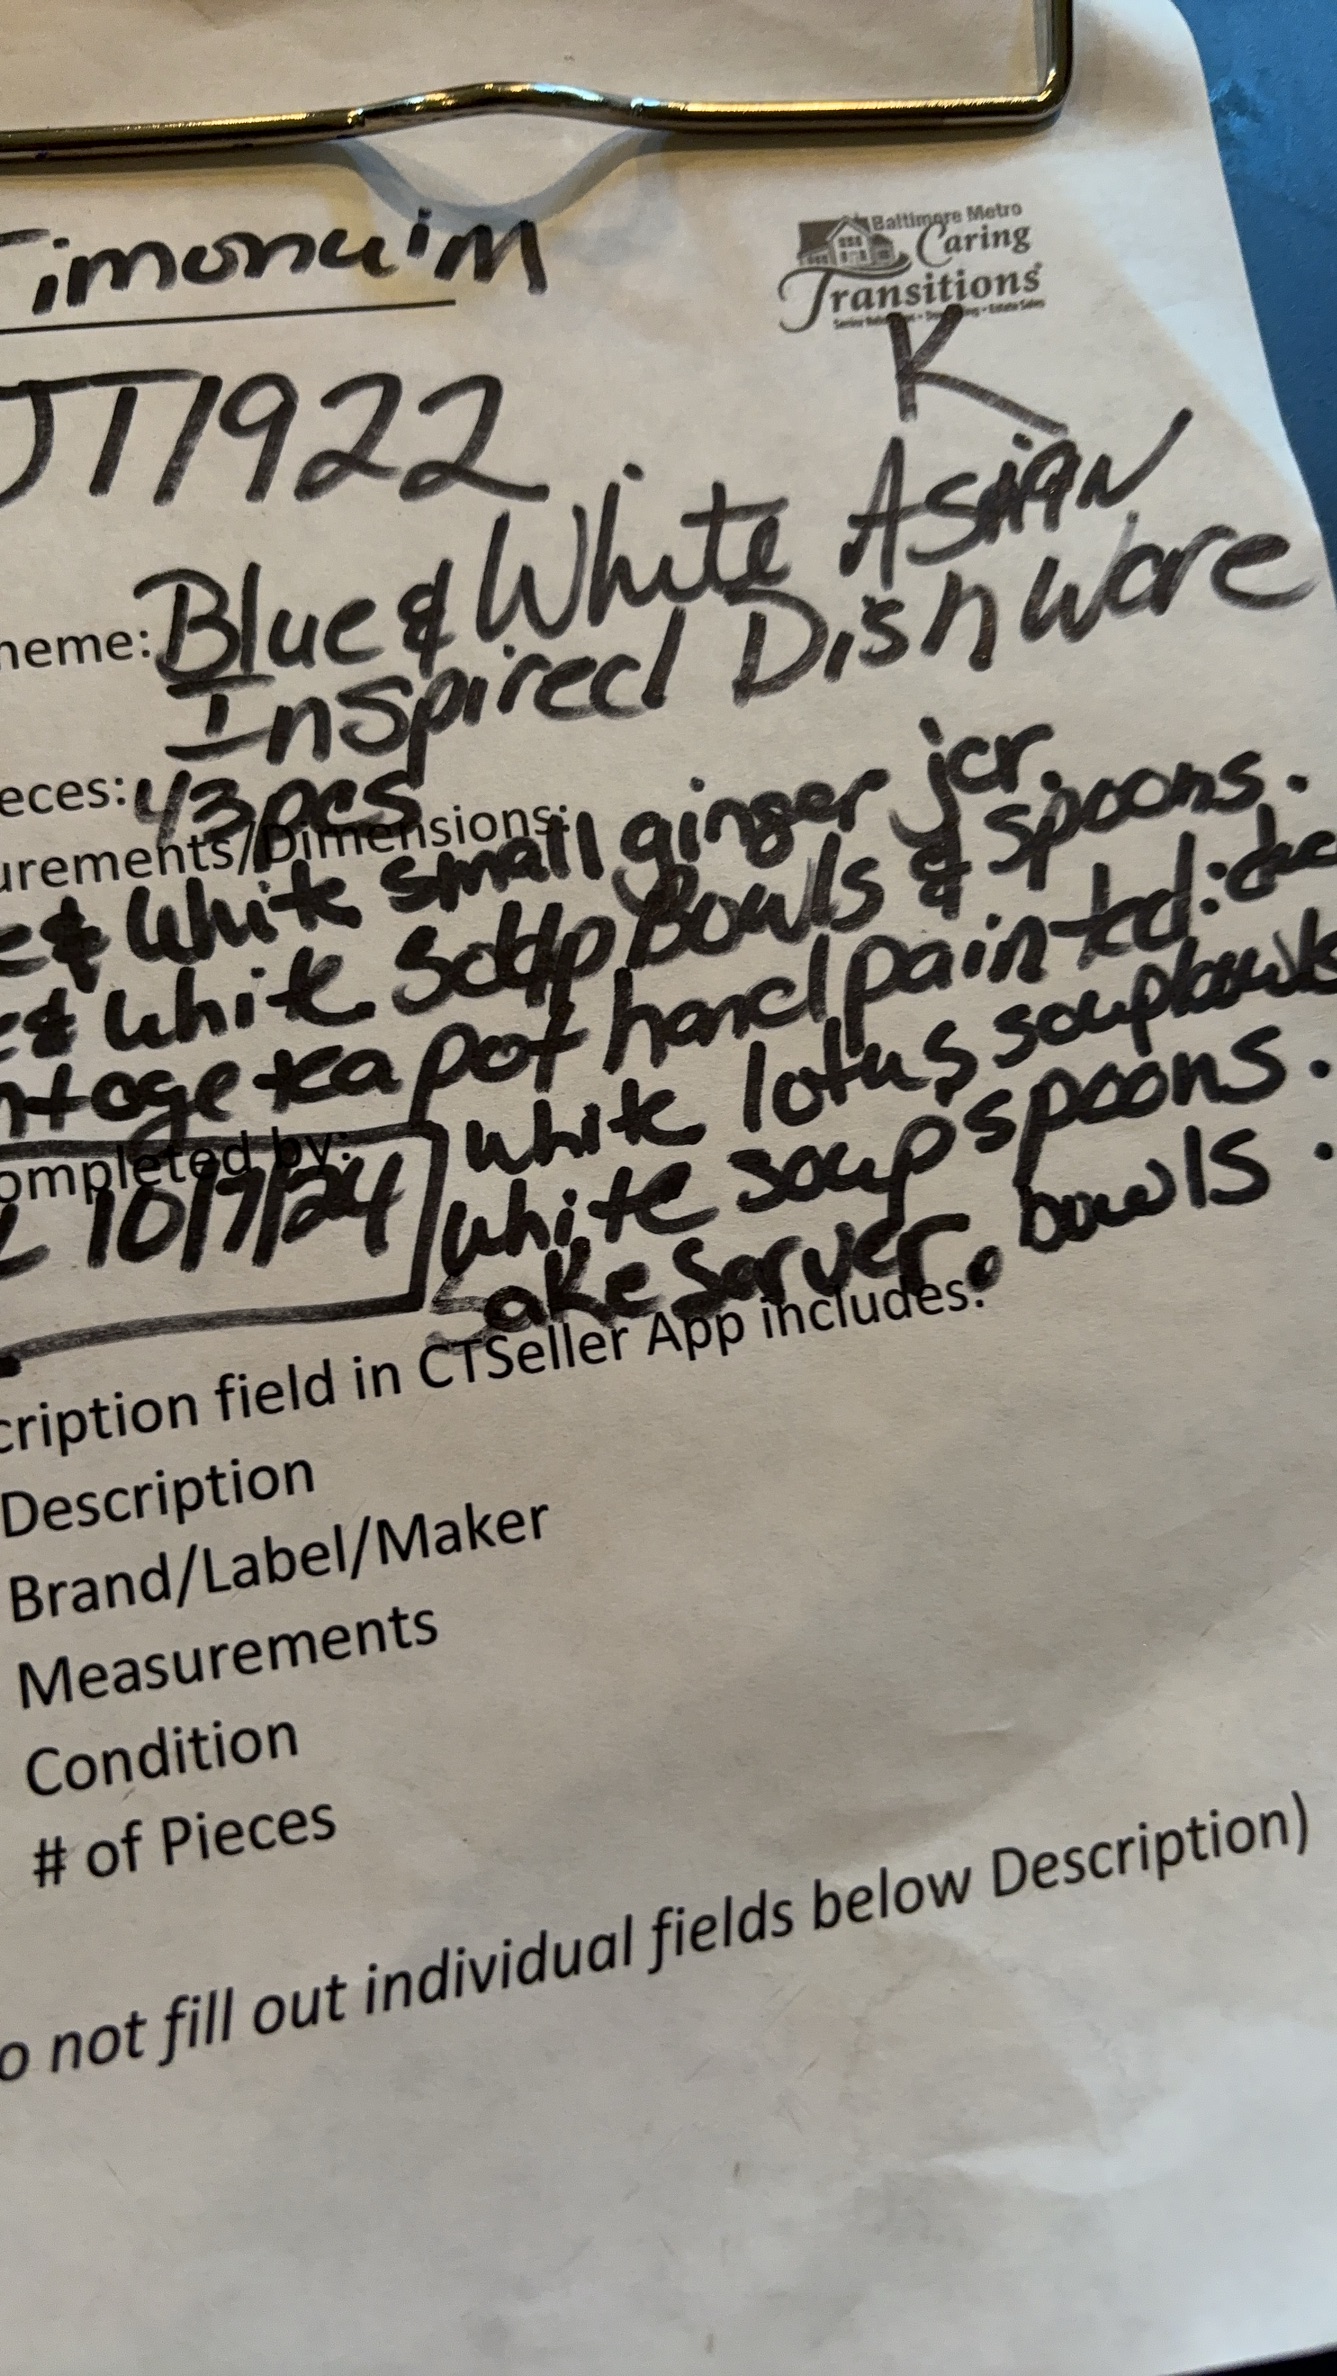 Timonuim
Baltimore Metro
Caring
Transitions
K
JT1922
heme: Blue & White ASIAN
Inspired Dishware
eces: 43 pcs
urements/Dimensions:
e & White small ginger jar.
e & White Soup Bowls & spoons.
ntage tea pot hand painted.
White lotus soup bowls
ompleted by:
10/7/24
White soup spoons.
Sake Server. bowls.
cription field in CTSeller App includes:
Description
Brand/Label/Maker
Measurements
Condition
# of Pieces
o not fill out individual fields below Description)